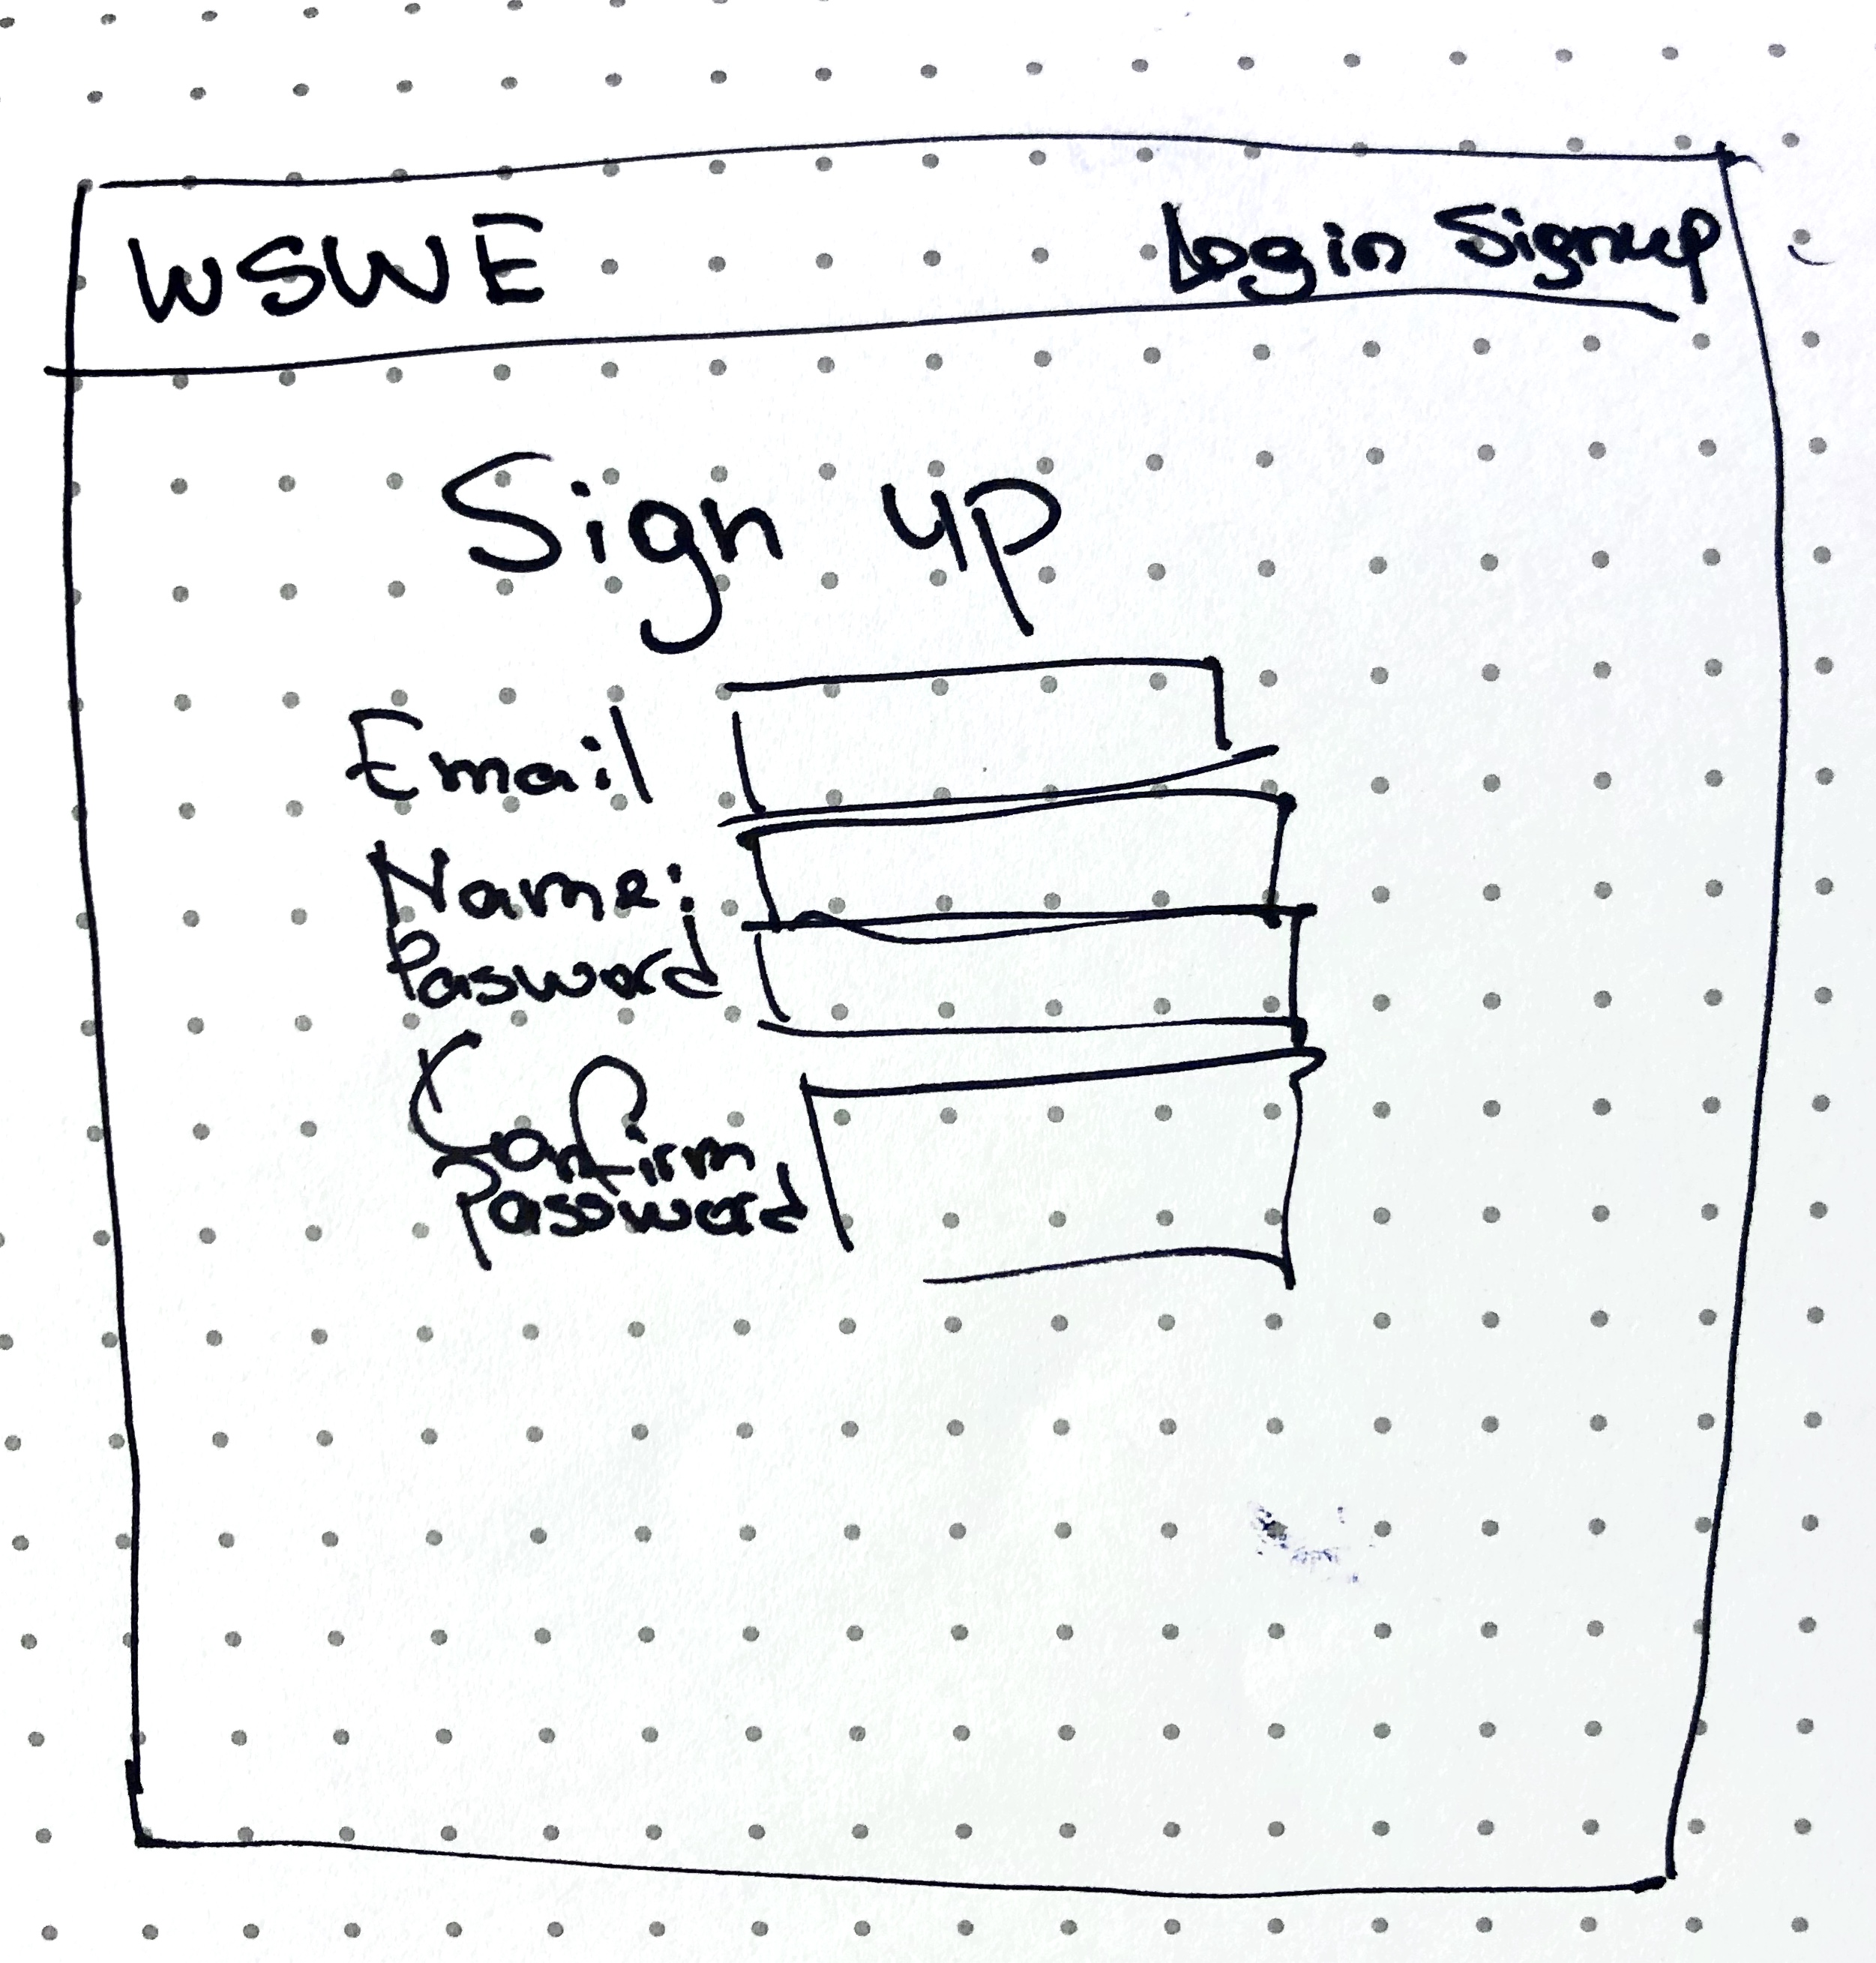 WSWE Login Signup
Sign up
Email
Name:
Pasword
Confirm
Password